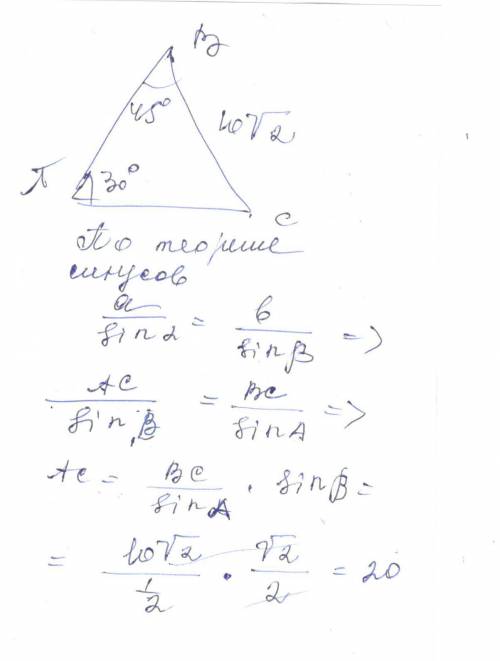 B
45°
10√2
A 30°
C
По теореме
синусов
a/sin α = b/sin β =>
AC/sin B = BC/sin A =>
AC = BC/sin A · sin B =
= 10√2/(1/2) · √2/2 = 20